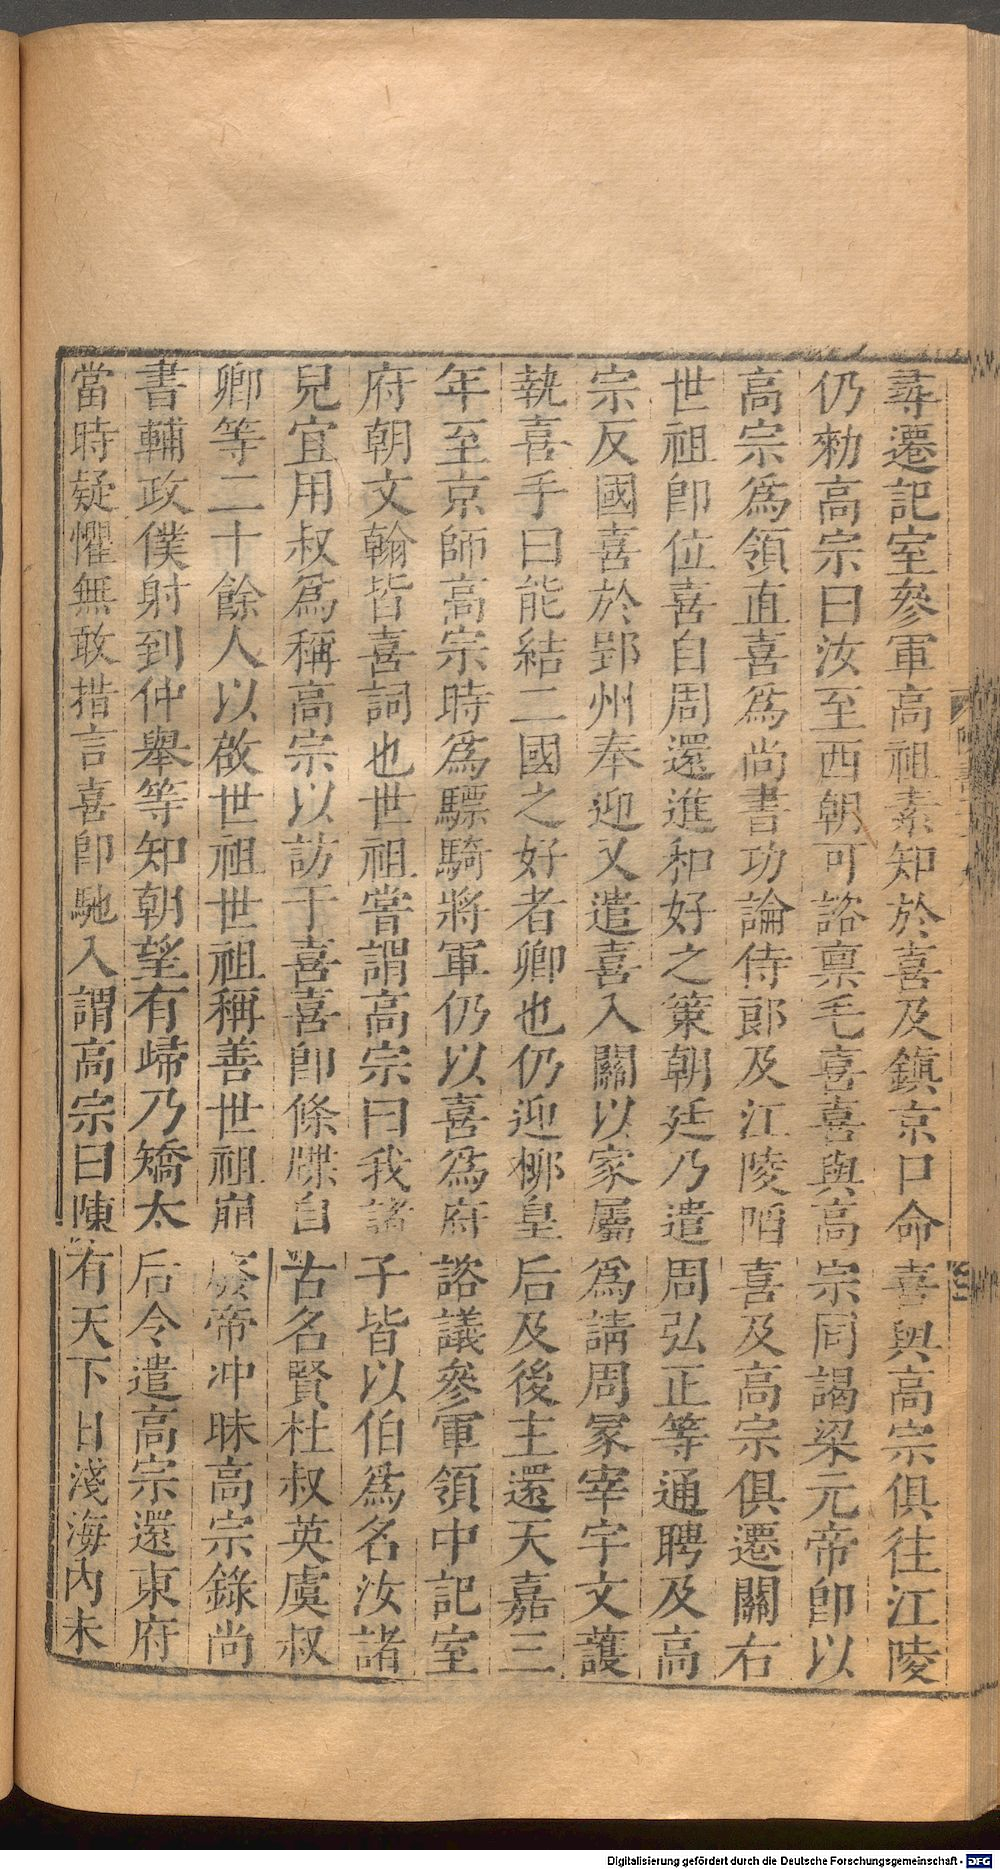 尋遷記室參軍高祖素知於喜及鎮京口命喜與高宗俱往江陵
仍勑高宗曰汝至西朝可諮禀毛喜喜與高宗同謁梁元帝卽以
高宗爲領直喜爲尚書功論侍郎及江陵陷喜及高宗俱遷關右
世祖卽位喜自周還進和好之策朝廷乃遣周弘正等通聘及高
宗反國喜於郢州奉迎又遣喜入關以家屬爲請周冢宰宇文護
執喜手曰能結二國之好者卿也仍迎柳皇后及後主還天嘉三
年至京師高宗時爲驃騎將軍仍以喜爲府諮議參軍領中記室
府朝文翰皆喜詞也世祖嘗謂高宗曰我諸子皆以伯爲名汝諸
兒宜用叔爲稱高宗以訪于喜喜卽條牒自古名賢杜叔英虞叔
卿等二十餘人以啟世祖世祖稱善世祖崩廢帝冲昧高宗錄尚
書輔政僕射到仲舉等知朝望有歸乃矯太后令遣高宗還東府
當時疑懼無敢措言喜卽馳入謂高宗曰陳有天下日淺海內未
Digitalisierung gefördert durch die Deutsche Forschungsgemeinschaft - DFG